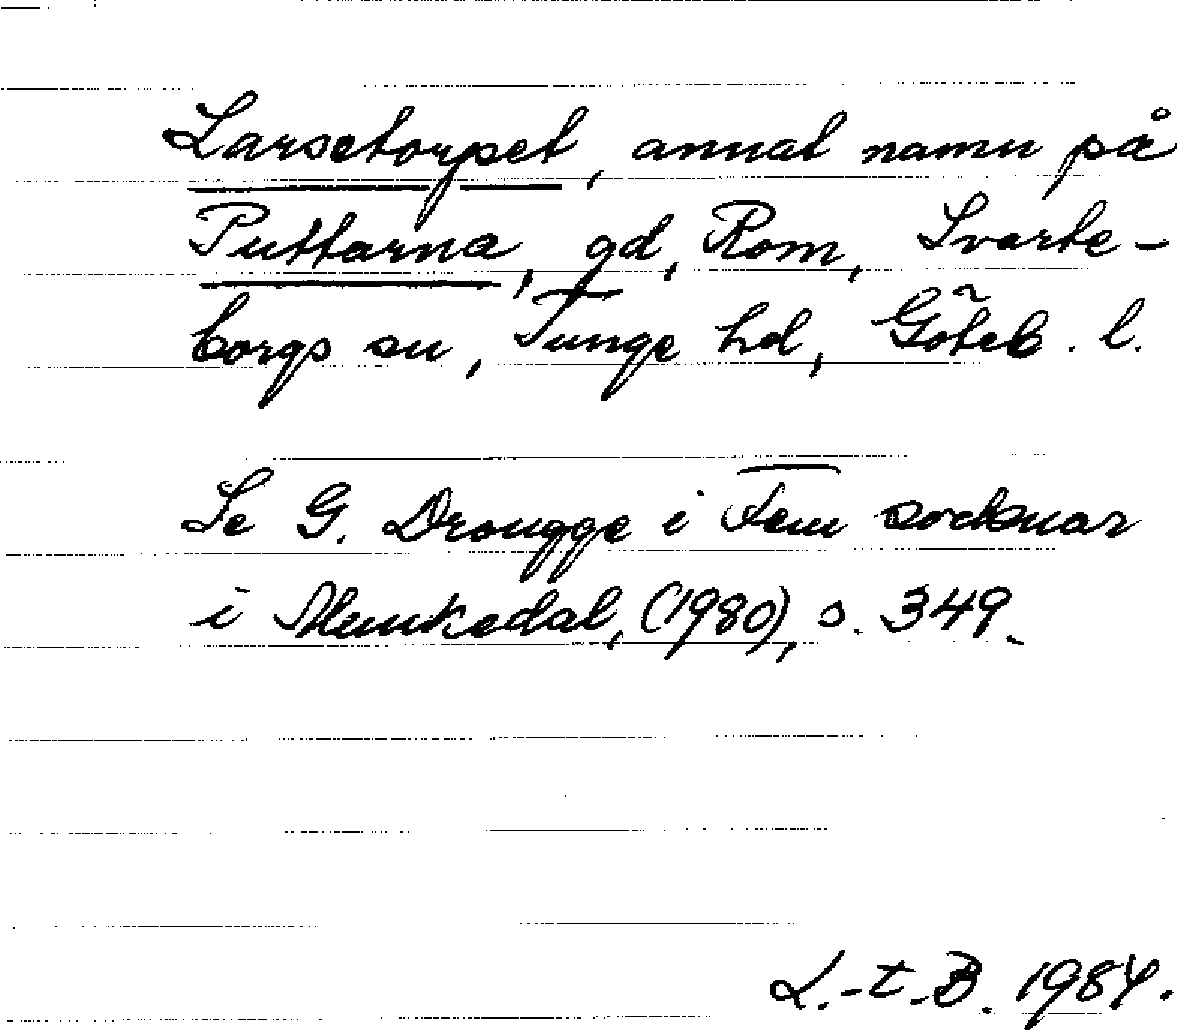 Larsetorpet, annat namn på
Puttarna, gd, Rom, Svarte-
borgs sn, Tunge hd, Göteb. l.
Se G. Drougge i Fem socknar
i Munkedal, (1980), s. 349.
L.-t.-B. 1984.